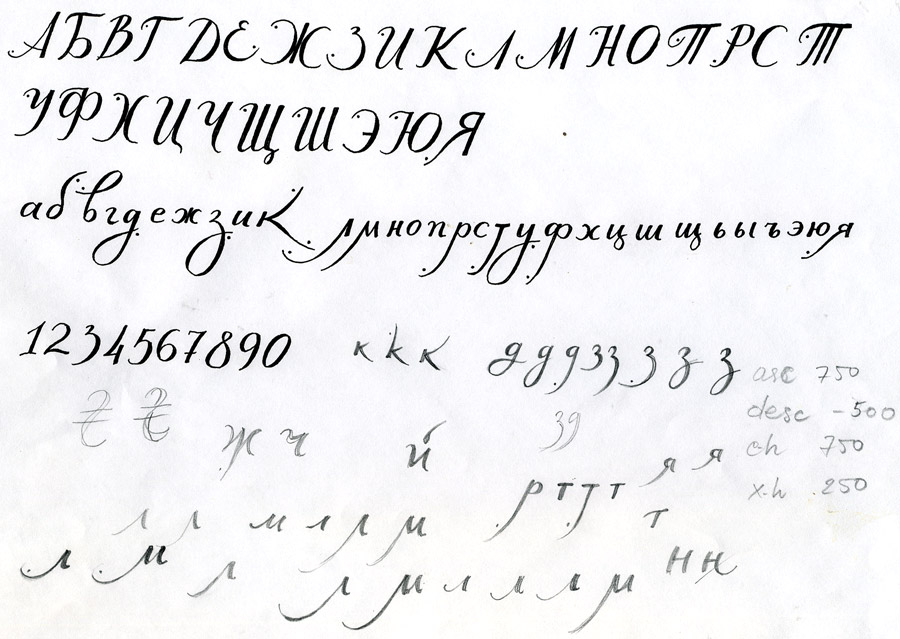 АБВГДЕЖЗИКЛМНОПРСТ
УФХЦЧЩШЭЮЯ
абвгдежзик лмнопрстуфхцшщьыъэюя
1234567890 к к к д д д з з з з з
asc 750
desc -500
ch 750
x.h 250
Ж ч й з д
р т т т я я
т
л л м л л м
л м л л м л л л м Н Н